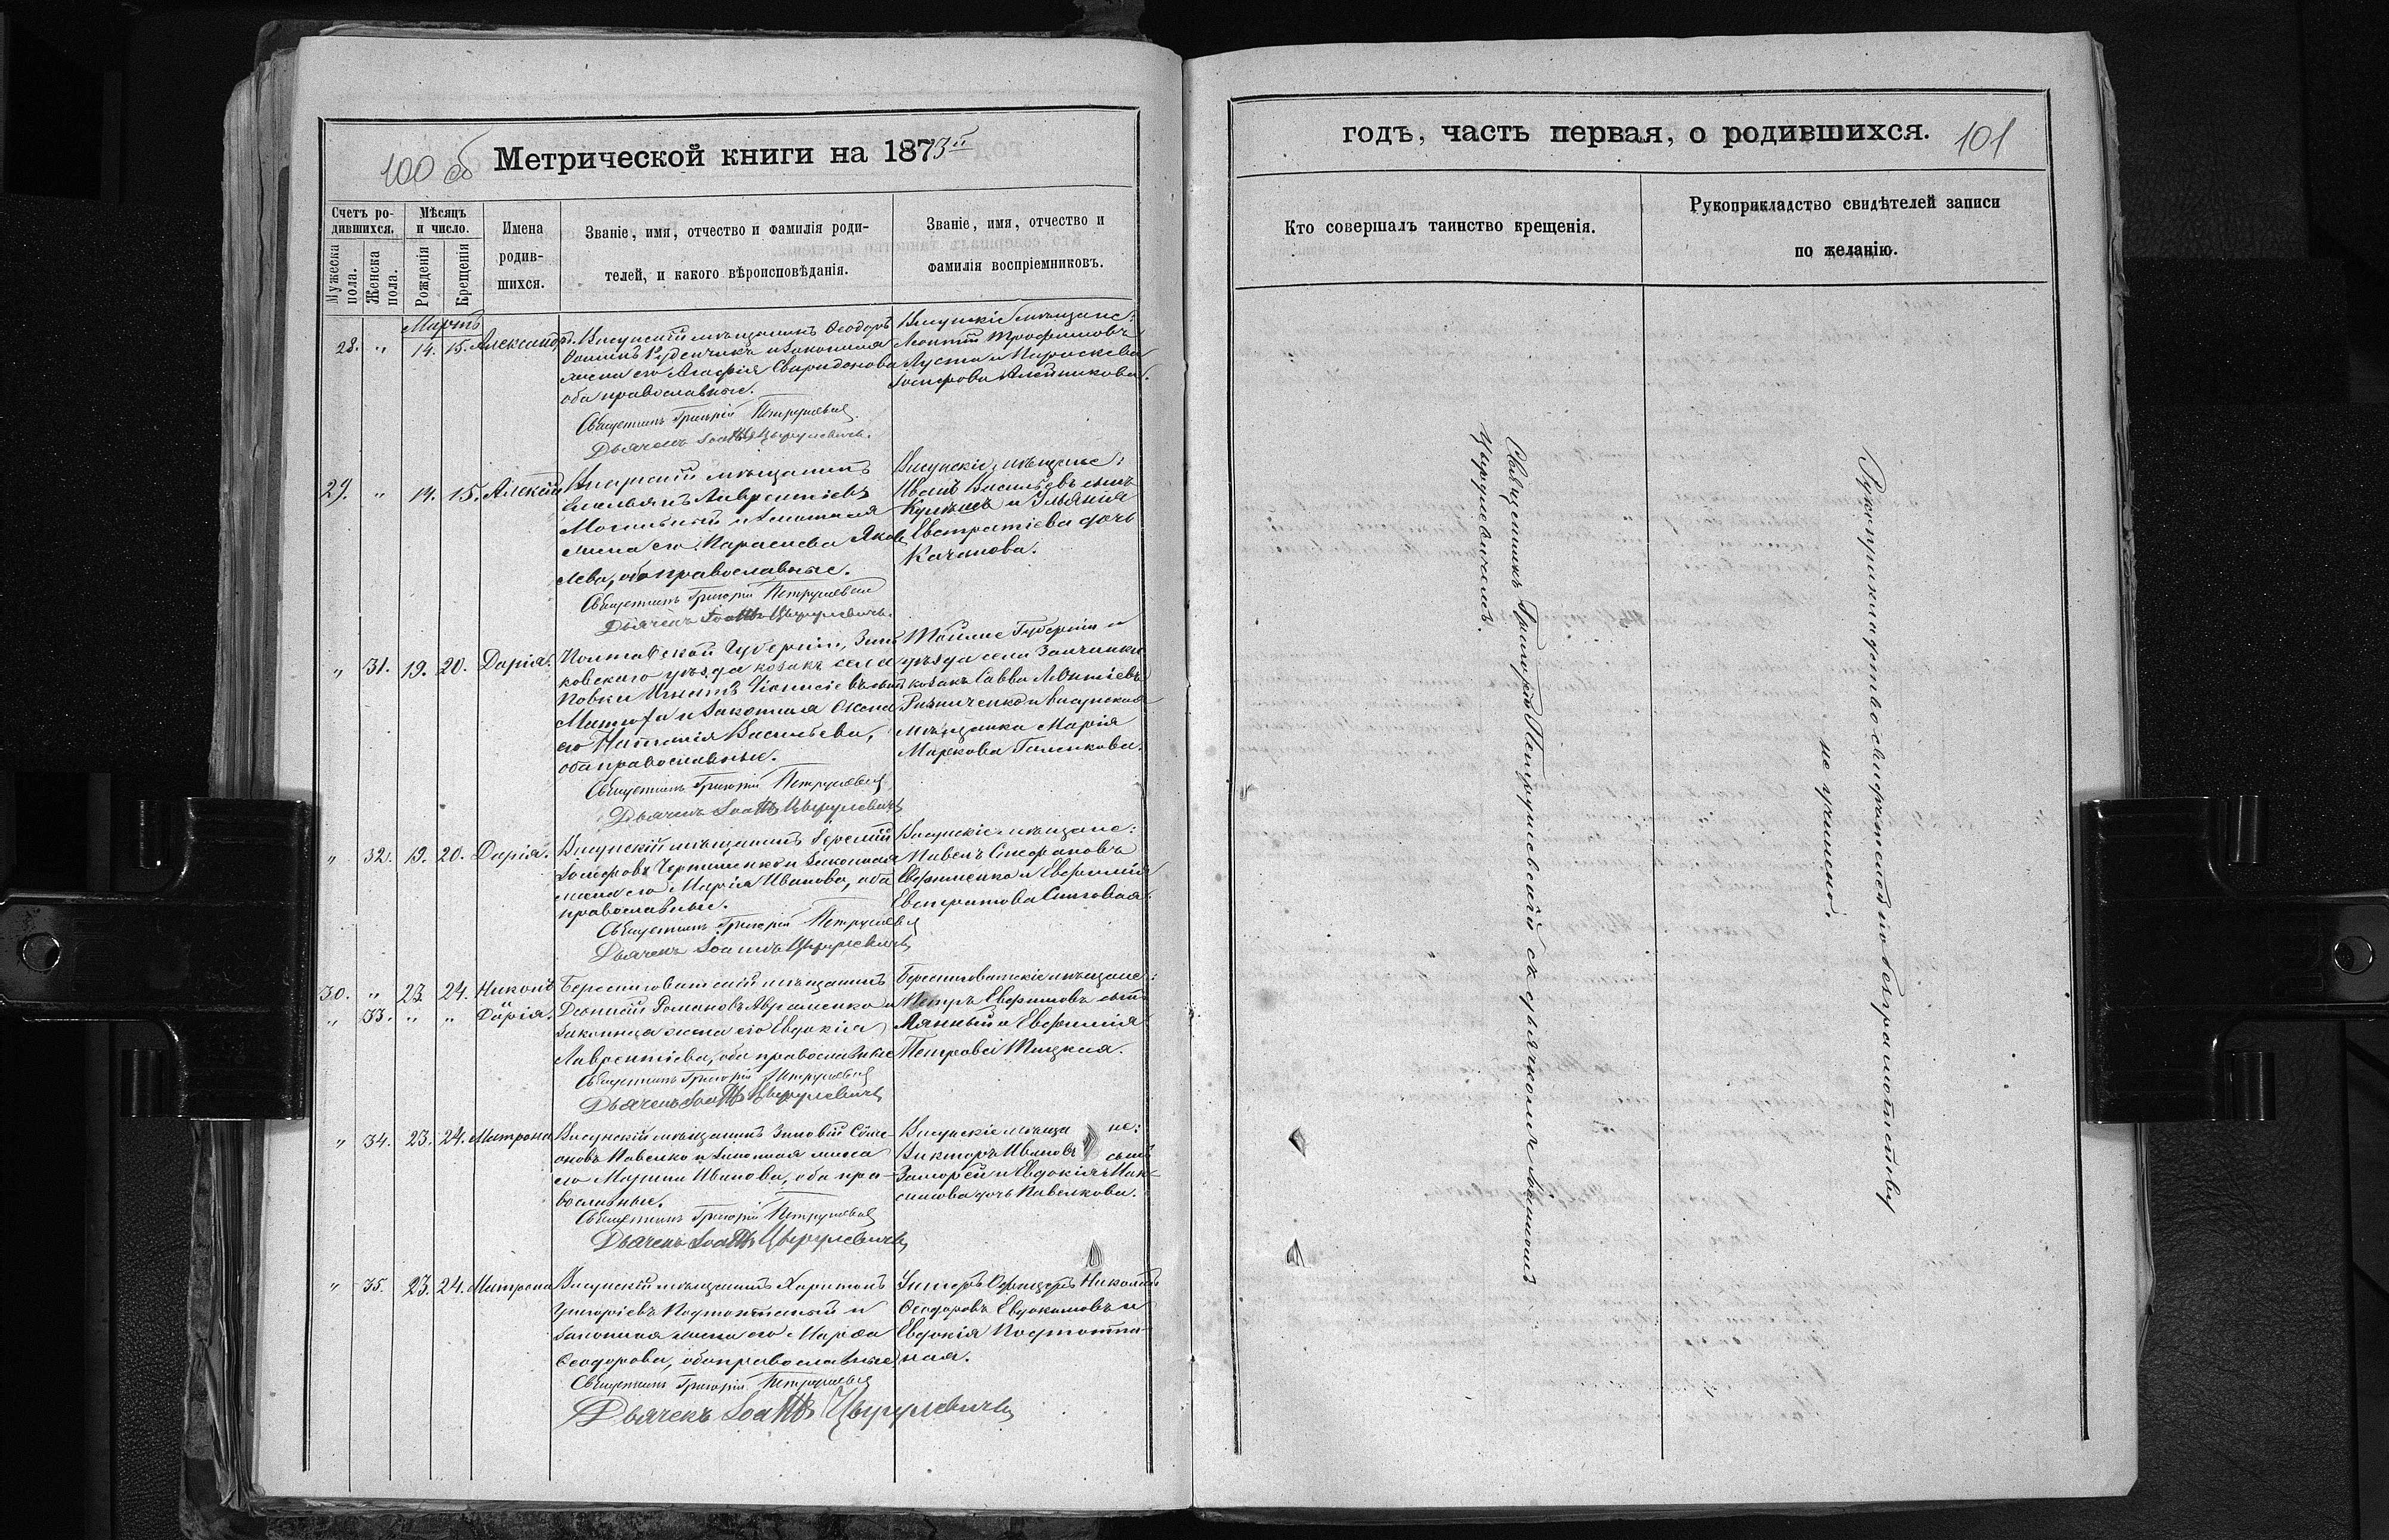 100 об Метрической книги на 1873й
Счетъ ро-
дившихся.
Мѣсяцъ
и число.
Имена
родив-
шихся.
Званіе, имя, отчество и фамилія роди-
телей, и какого вѣроисповѣданія.
Званіе, имя, отчество и
фамилія воспріемниковъ.
Мужеска
пола.
Женска
пола.
Рожденія
Крещенія
Мартъ
28. " 14. 15. Александръ.
Висунскій мѣщанинъ Ѳеодоръ
Руденчикъ и законная
жена его Агафія Спиридонова
оба православные.
Священникъ Григорій Петрушевскій
Дьячекъ Іоаннъ Цырулевичъ.
Висунскіе мѣщане:
Леонтій Трофимовъ
Луста и Параскева
Іосифова Алейникова.
29. " 14. 15. Алексій
Висунскій мѣщанинъ
Емельянъ Лаврентіевъ
и законная
жена его Параскева Яков
лева, оба православные.
Священникъ Григорій Петрушевскій
Дьячекъ Іоаннъ Цырулевичъ.
Висунскіе мѣщане:
Иванъ Васильевъ сынъ
и Ульянія
Евстратіева дочь
Качанова.
" 31. 19. 20. Дарія.
Полтавской Губерніи, Зинь
ковскаго уѣзда козакъ села
Повки Игнатъ
и законная жена
его Наталія Васильева,
оба православные.
Священникъ Григорій Петрушевскій
Дьячекъ Іоаннъ Цырулевичъ
Тойже Губерніи и
уѣзда села
козакъ Савва Леонтіевъ
и висунская
мѣщанка Марія
Маркова Голикова.
" 32. 19. 20. Дарія.
Висунскій мѣщанинъ Іеремій
Іосифовъ и законная
жена его Марія Иванова, оба
православные.
Священникъ Григорій Петрушевскій
Дьячекъ Іоаннъ Цырулевичъ
Висунскіе мѣщане:
Павелъ Стефановъ
Ефименко и Евфимія
Евстратова
30. " 23. 24. Никонъ
" 33. " " Дарія.
Берестоватскій мѣщанинъ
Діонисій Романовъ Авраменко и
законная жена его Евдокія
Лаврентіева, оба православные
Священникъ Григорій Петрушевскій
Дьячекъ Іоаннъ Цырулевичъ
Берестоватскіе мѣщане:
Петръ Евфимовъ сынъ
и Евфимія
Петрова
" 34. 23. 24. Матрона
Висунскій мѣщанинъ Зиновій Симе-
оновъ Павленко и законная жена
его Марина Иванова, оба пра-
вославные.
Священникъ Григорій Петрушевскій
Дьячекъ Іоаннъ Цырулевичъ
Висунскіе мѣщане:
Викторъ Ивановъ сынъ
и Евдокія Мак-
симова дочь Павленкова.
" 35. 23. 24. Матрона
Висунскій мѣщанинъ Харитонъ
Григоріевъ и
законная жена его Марѳа
Ѳеодорова, оба православные
Священникъ Григорій Петрушевскій
Дьячекъ Іоаннъ Цырулевичъ
Унтеръ Офицеръ Николай
Ѳеодоровъ Евдокимовъ и
Евдокія
ная.
годъ, часть первая, о родившихся. 101
Кто совершалъ таинство крещенія.
Рукоприкладство свидѣтелей записи
по желанію.
Священникъ Григорій Петрушевскій съ дьячкомъ Іоанномъ
Цырулевичемъ.
Рукоприкладство свидѣтелей по безграмотству
не учинено.